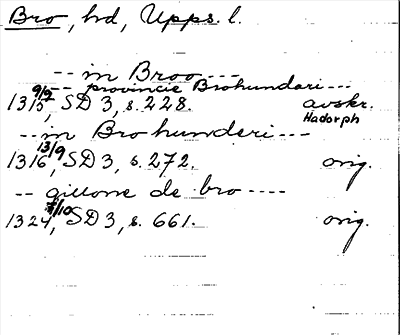 Bro, hd, Upps. l.
-- in Broo ---
-- provincie Brohundari ---
1315 9/9, SD 3, s. 228. avskr. Hadorph
-- in Bro hunderi ---
1316 13/9, SD 3, s. 272. orig.
-- gillone de bro ----
1324 7/10, SD 3, s. 661. orig.